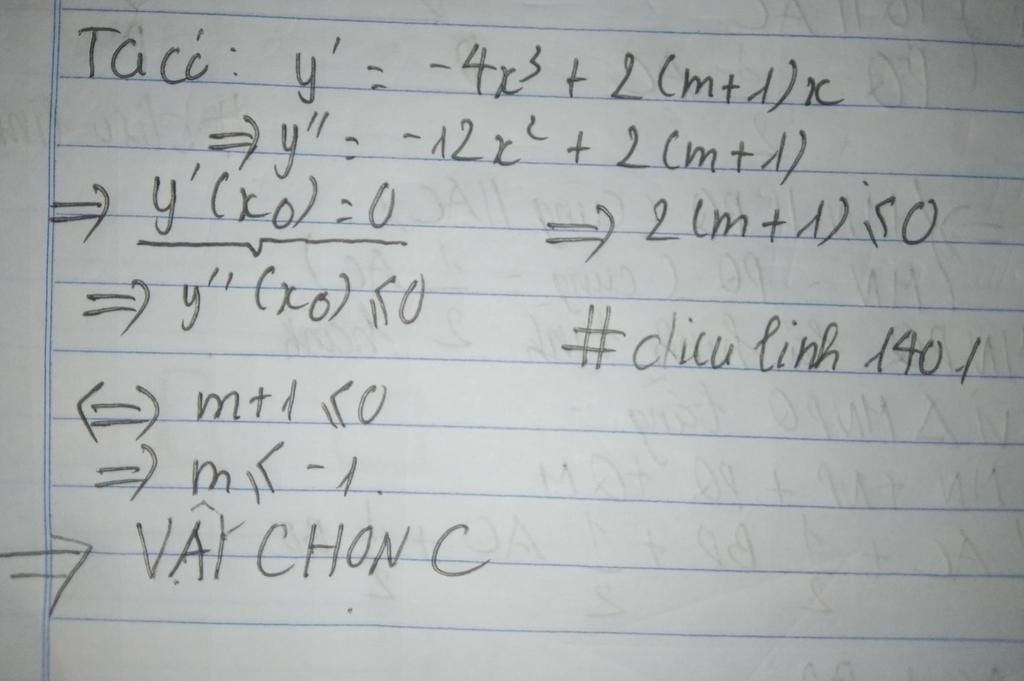 Ta có: y' = -4x³ + 2(m+1)x
⇒ y'' = -12x² + 2(m+1)
⇒ y'(x₀) = 0 ⇒ 2(m+1) ⩽ 0
⇒ y''(x₀) ⩽ 0
# diệu linh 1401
⇔ m+1 ⩽ 0
⇒ m ⩽ -1.
⇒ VẬY CHỌN C